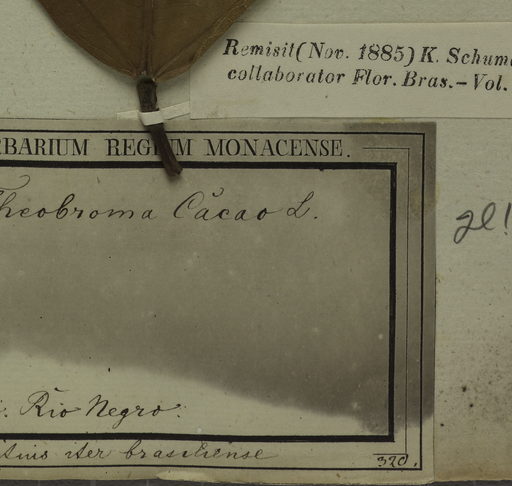 Remisit (Nov. 1885) K. Schum
collaborator Flor. Bras. – Vol.
RBARIUM REGIUM MONACENSE.
Theobroma Cacao L.
gl!
Rio Negro.
iter brasiliense
320.